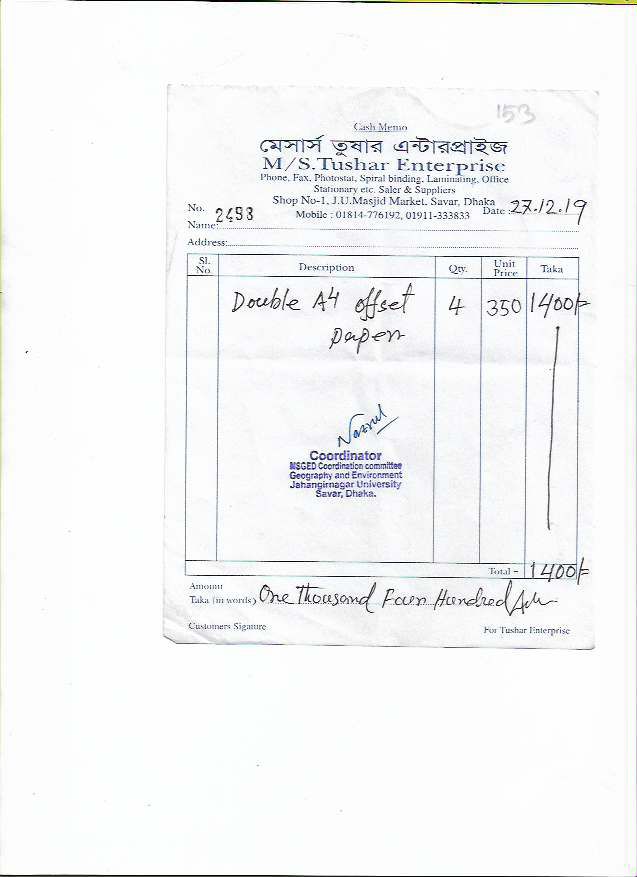 153
Cash Memo
মেসার্স তুষার এন্টারপ্রাইজ
M/S.Tushar Enterprise
Phone, Fax, Photostat, Spiral binding, Laminating, Office
Stationary etc. Saler & Suppliers
Shop No-1, J.U.Masjid Market, Savar, Dhaka
No. 2493 Mobile : 01814-776192, 01911-333833 Date : 27.12.19
Name:
Address:
Sl. No. Description Qty. Unit Price Taka
Double A4 offset 4 350 1400/-
paper
Nazrul
Coordinator
MSGED Coordination committee
Geography and Environment
Jahangirnagar University
Savar, Dhaka.
Total = 1400/-
Amount
Taka (in words) One Thousand Four Hundred
Customers Sigature For Tushar Enterprise